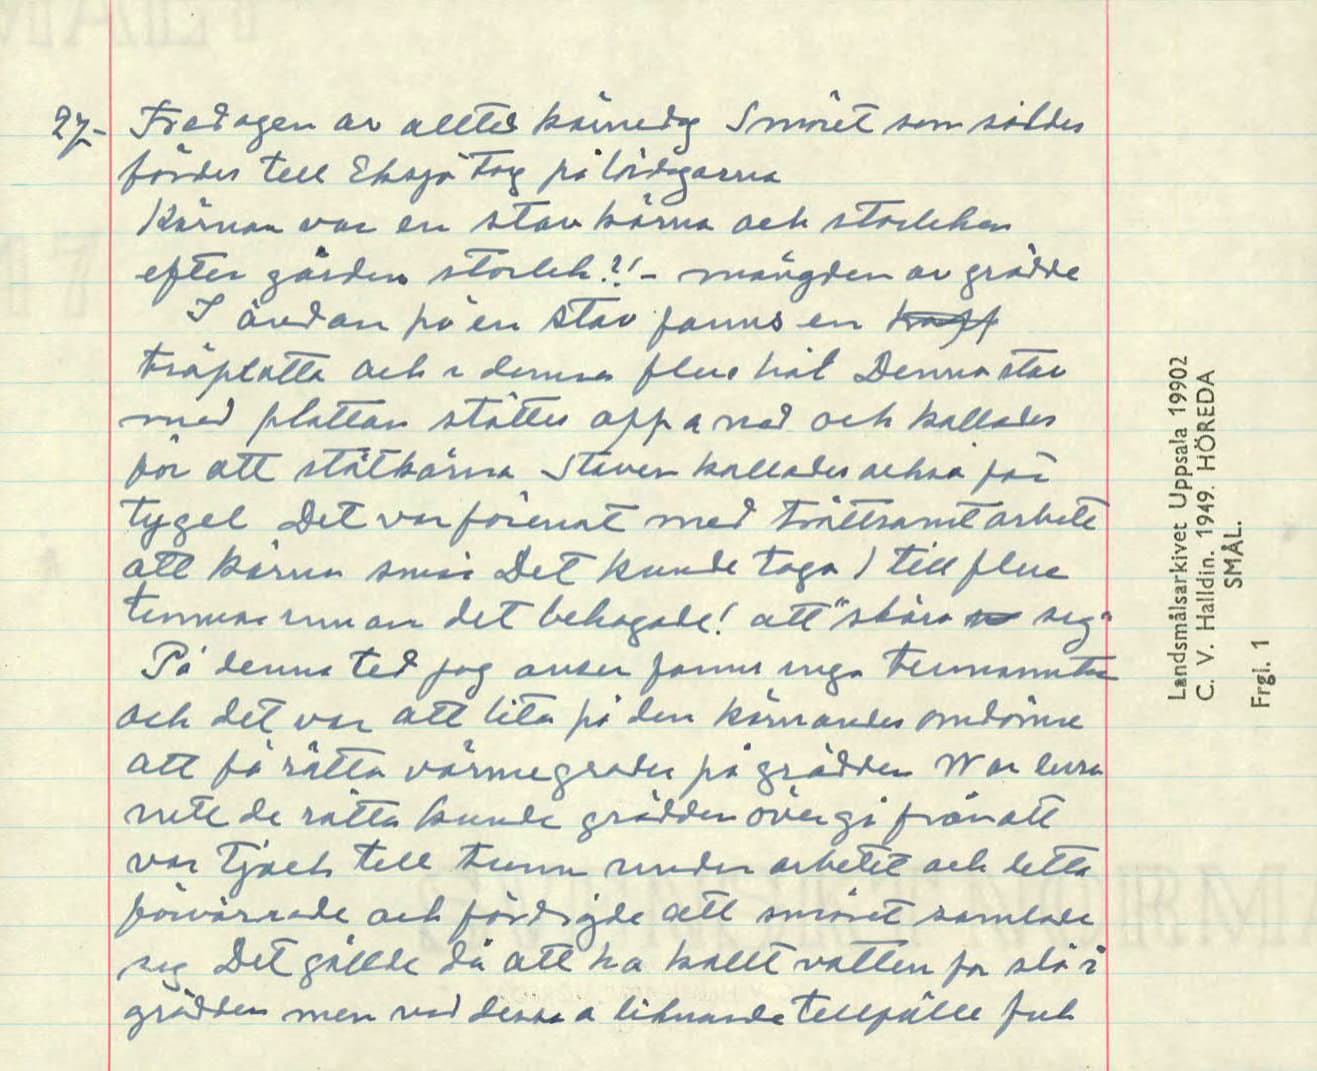 27- Fredagen av alltid kärnedag Smöret som såldes
fördes till Eksjö Torg på lördagarna
Kärnan var en stavkärna och storleken
efter gården storlek?!- mängden av grädde
I ändan på en stav fanns en
träplatta och i denna flera hål Denna stav
med plattan stöttes opp a ned och kallades
för att stötkärna Staven kallades också för
tygel Det var förenat med tröttsamt arbete
att kärna smör Det kunde taga 1 till flera
timmar innan det behagade! att "skära seg"
På denna tid jag avser fanns inga
och det var att lita på den kärnandes omdöme
att få rätta värmegrader på grädden War
inte de rätta kunde grädden övergå från att
var tjock till tunn under arbetet och detta
förvärrade och fördröjde att smöret samlade
seg Det gällde då att ha kallt vatten för slå i
grädden men ved dessa a liknande tillfälle fick
Landsmålsarkivet Uppsala 19902
C. V. Halldin. 1949. HÖREDA
SMÅL.
Frgl. 1